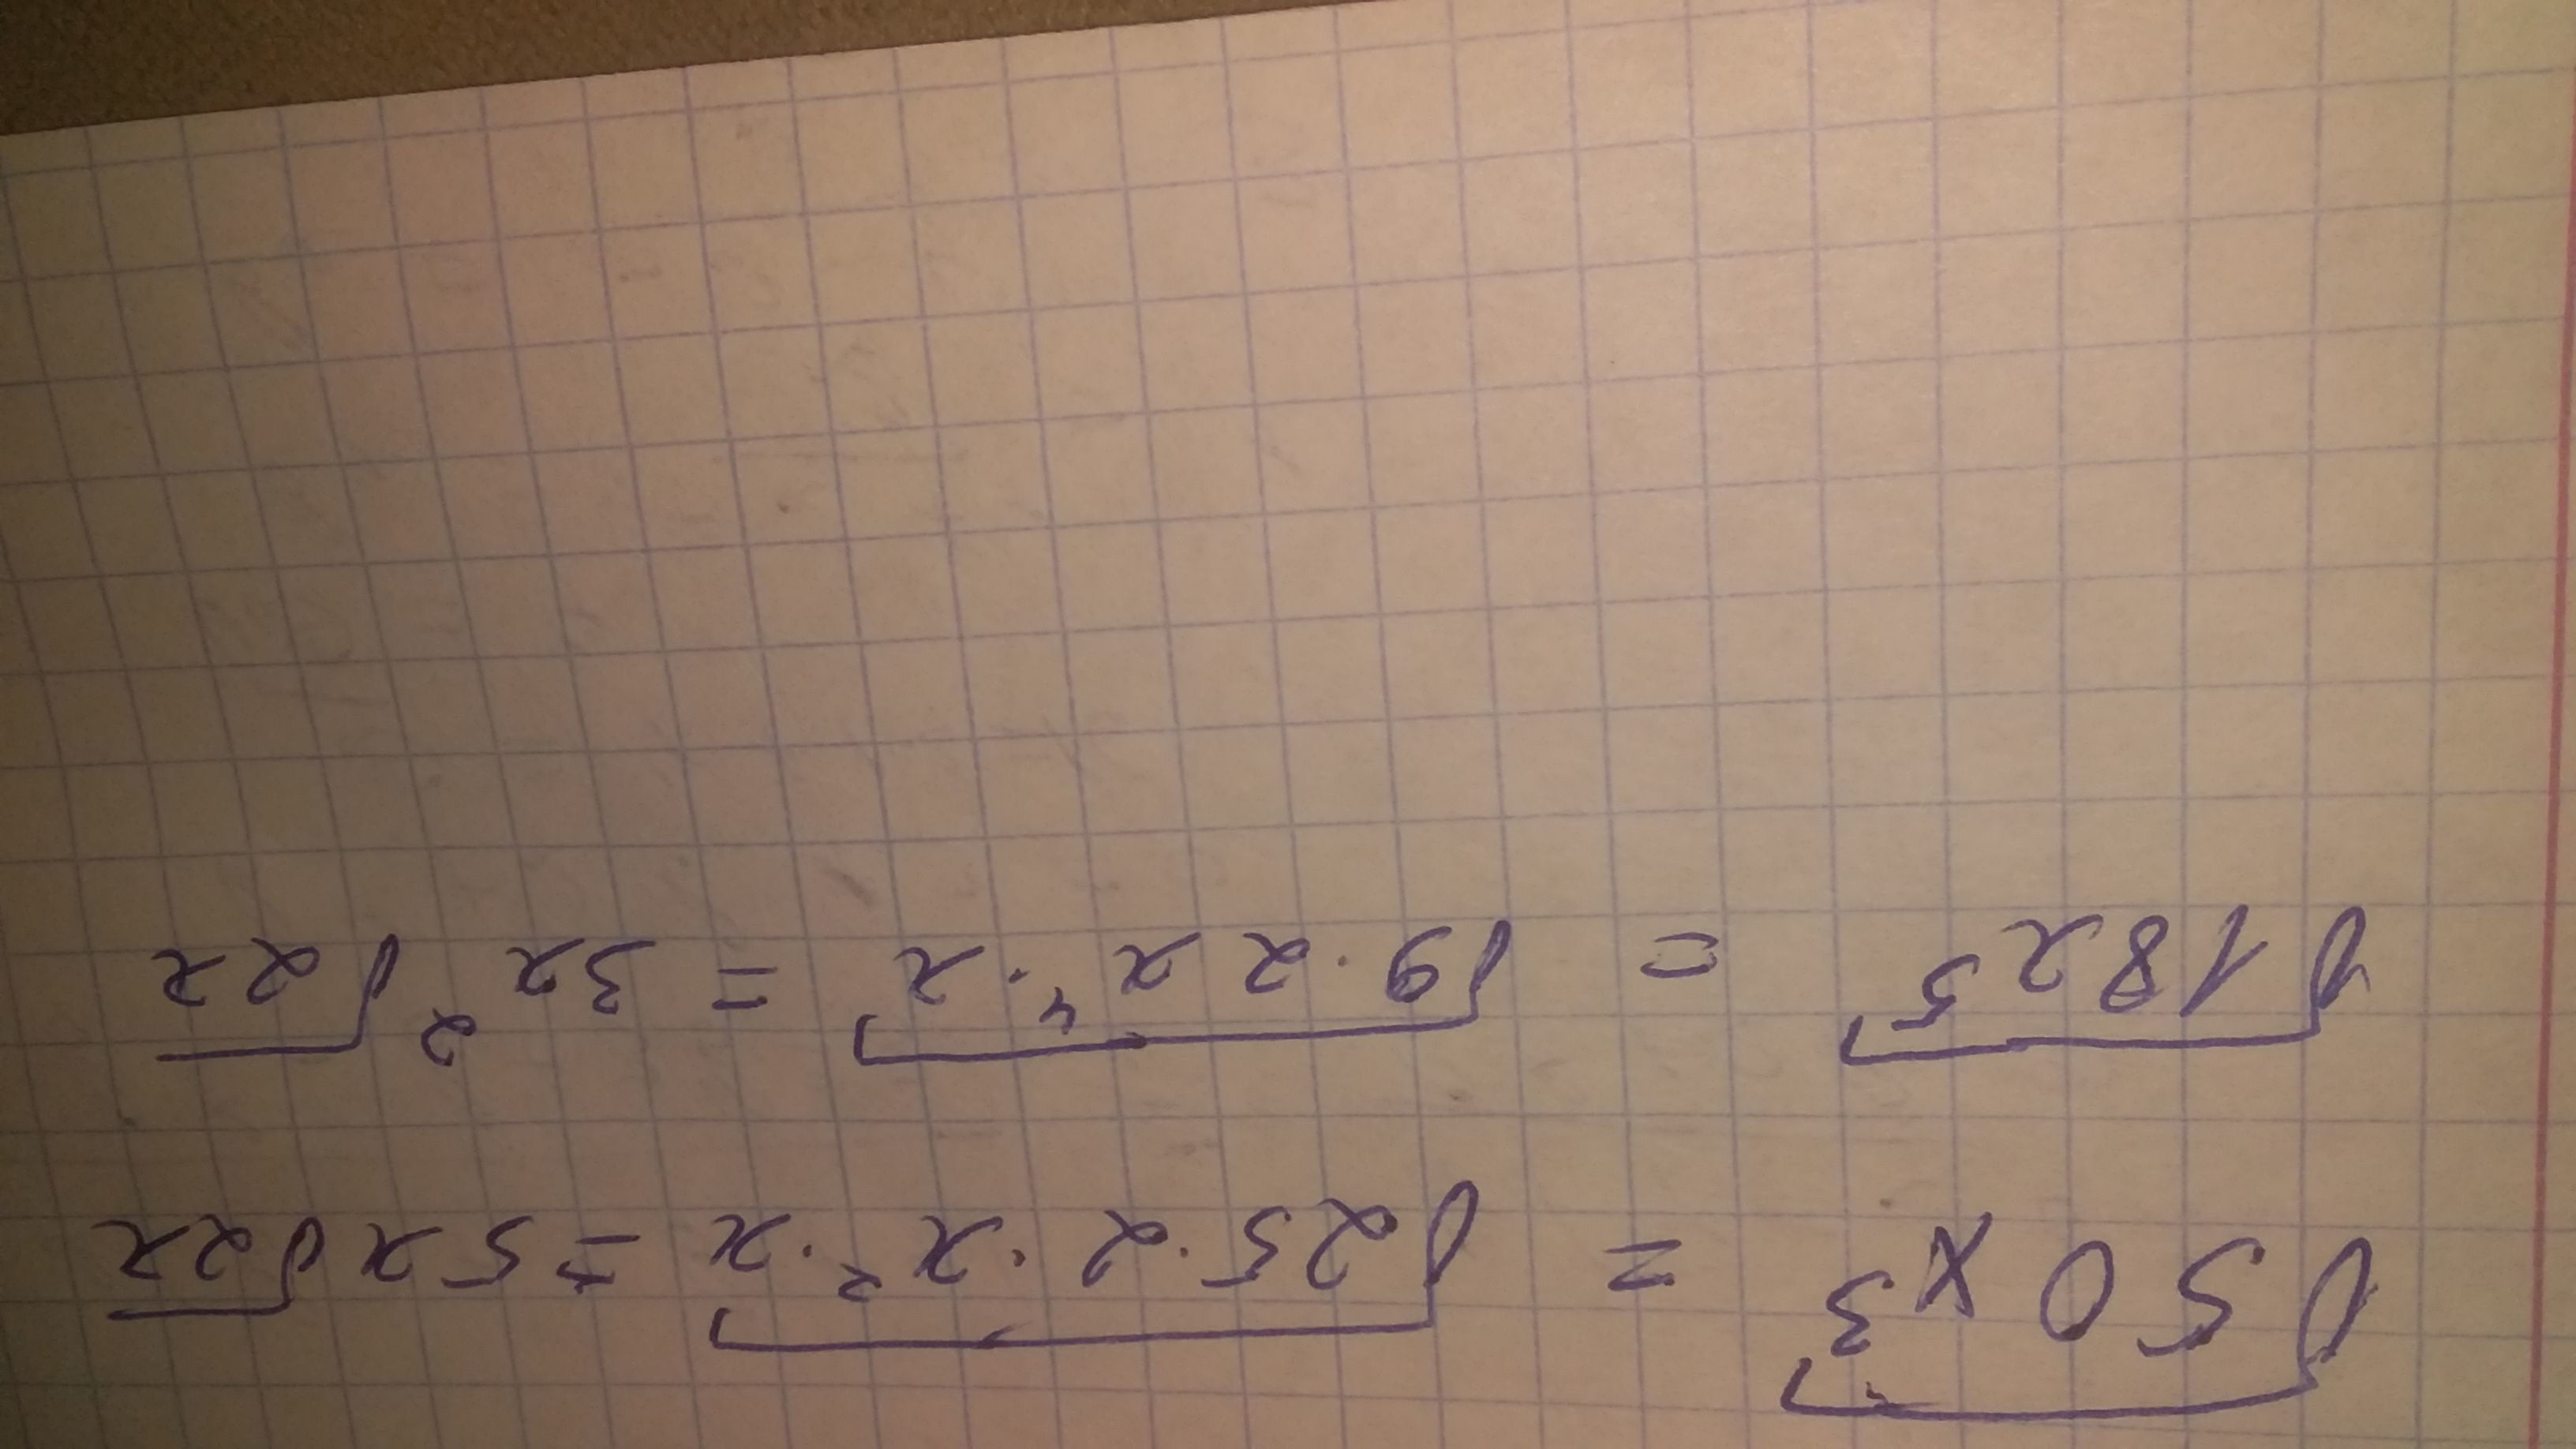 √50x³ = √25·2·x²·x = 5x√2x
√18x⁵ = √9·2x⁴·x = 3x²√2x